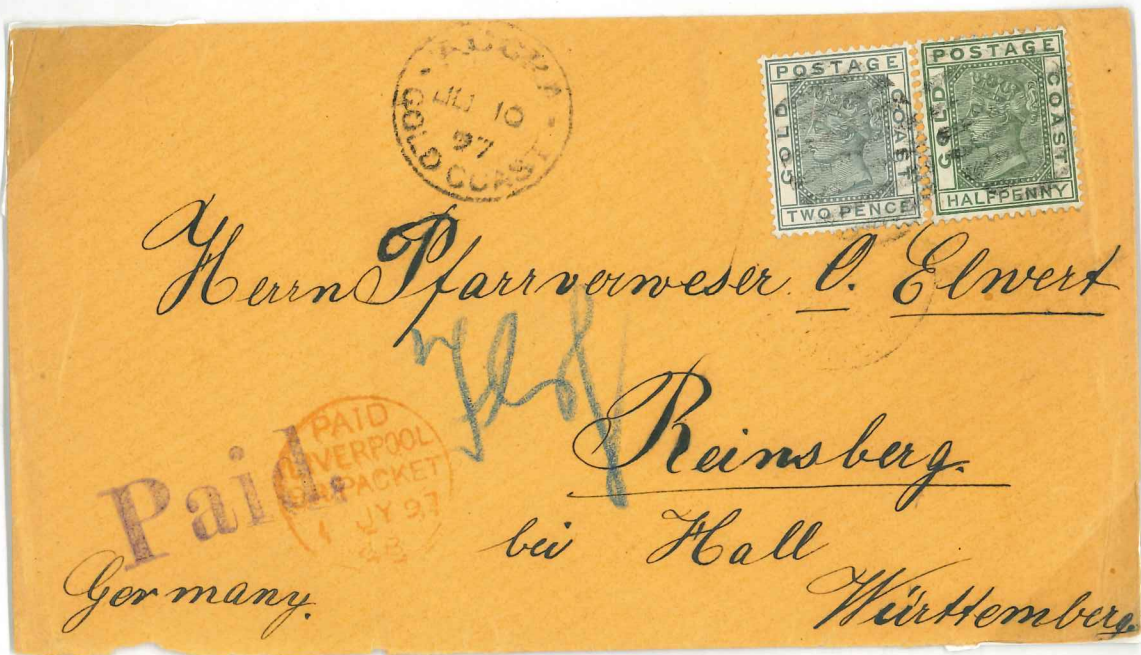 ACCRA
JU 10
97
GOLD COAST
POSTAGE
GOLD COAST
TWO PENCE
POSTAGE
GOLD COAST
HALFPENNY
Herrn Pfarrverweser O. Elwert
Reinsberg.
bei Hall
Württemberg.
Paid.
PAID
LIVERPOOL
PACKET
JY 97
Germany.